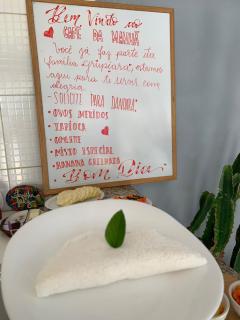 Bem Vindo ao
CAFÉ DA MANHÃ
Você já faz parte da
família estamos
aqui para te servir com
alegria.
- SOLICITE PARA DANDARA:
• OVOS MEXIDOS
• TAPIOCA
• OMELETE
• MISTO ESPECIAL
• BANANA GRELHADA
Bom Dia!